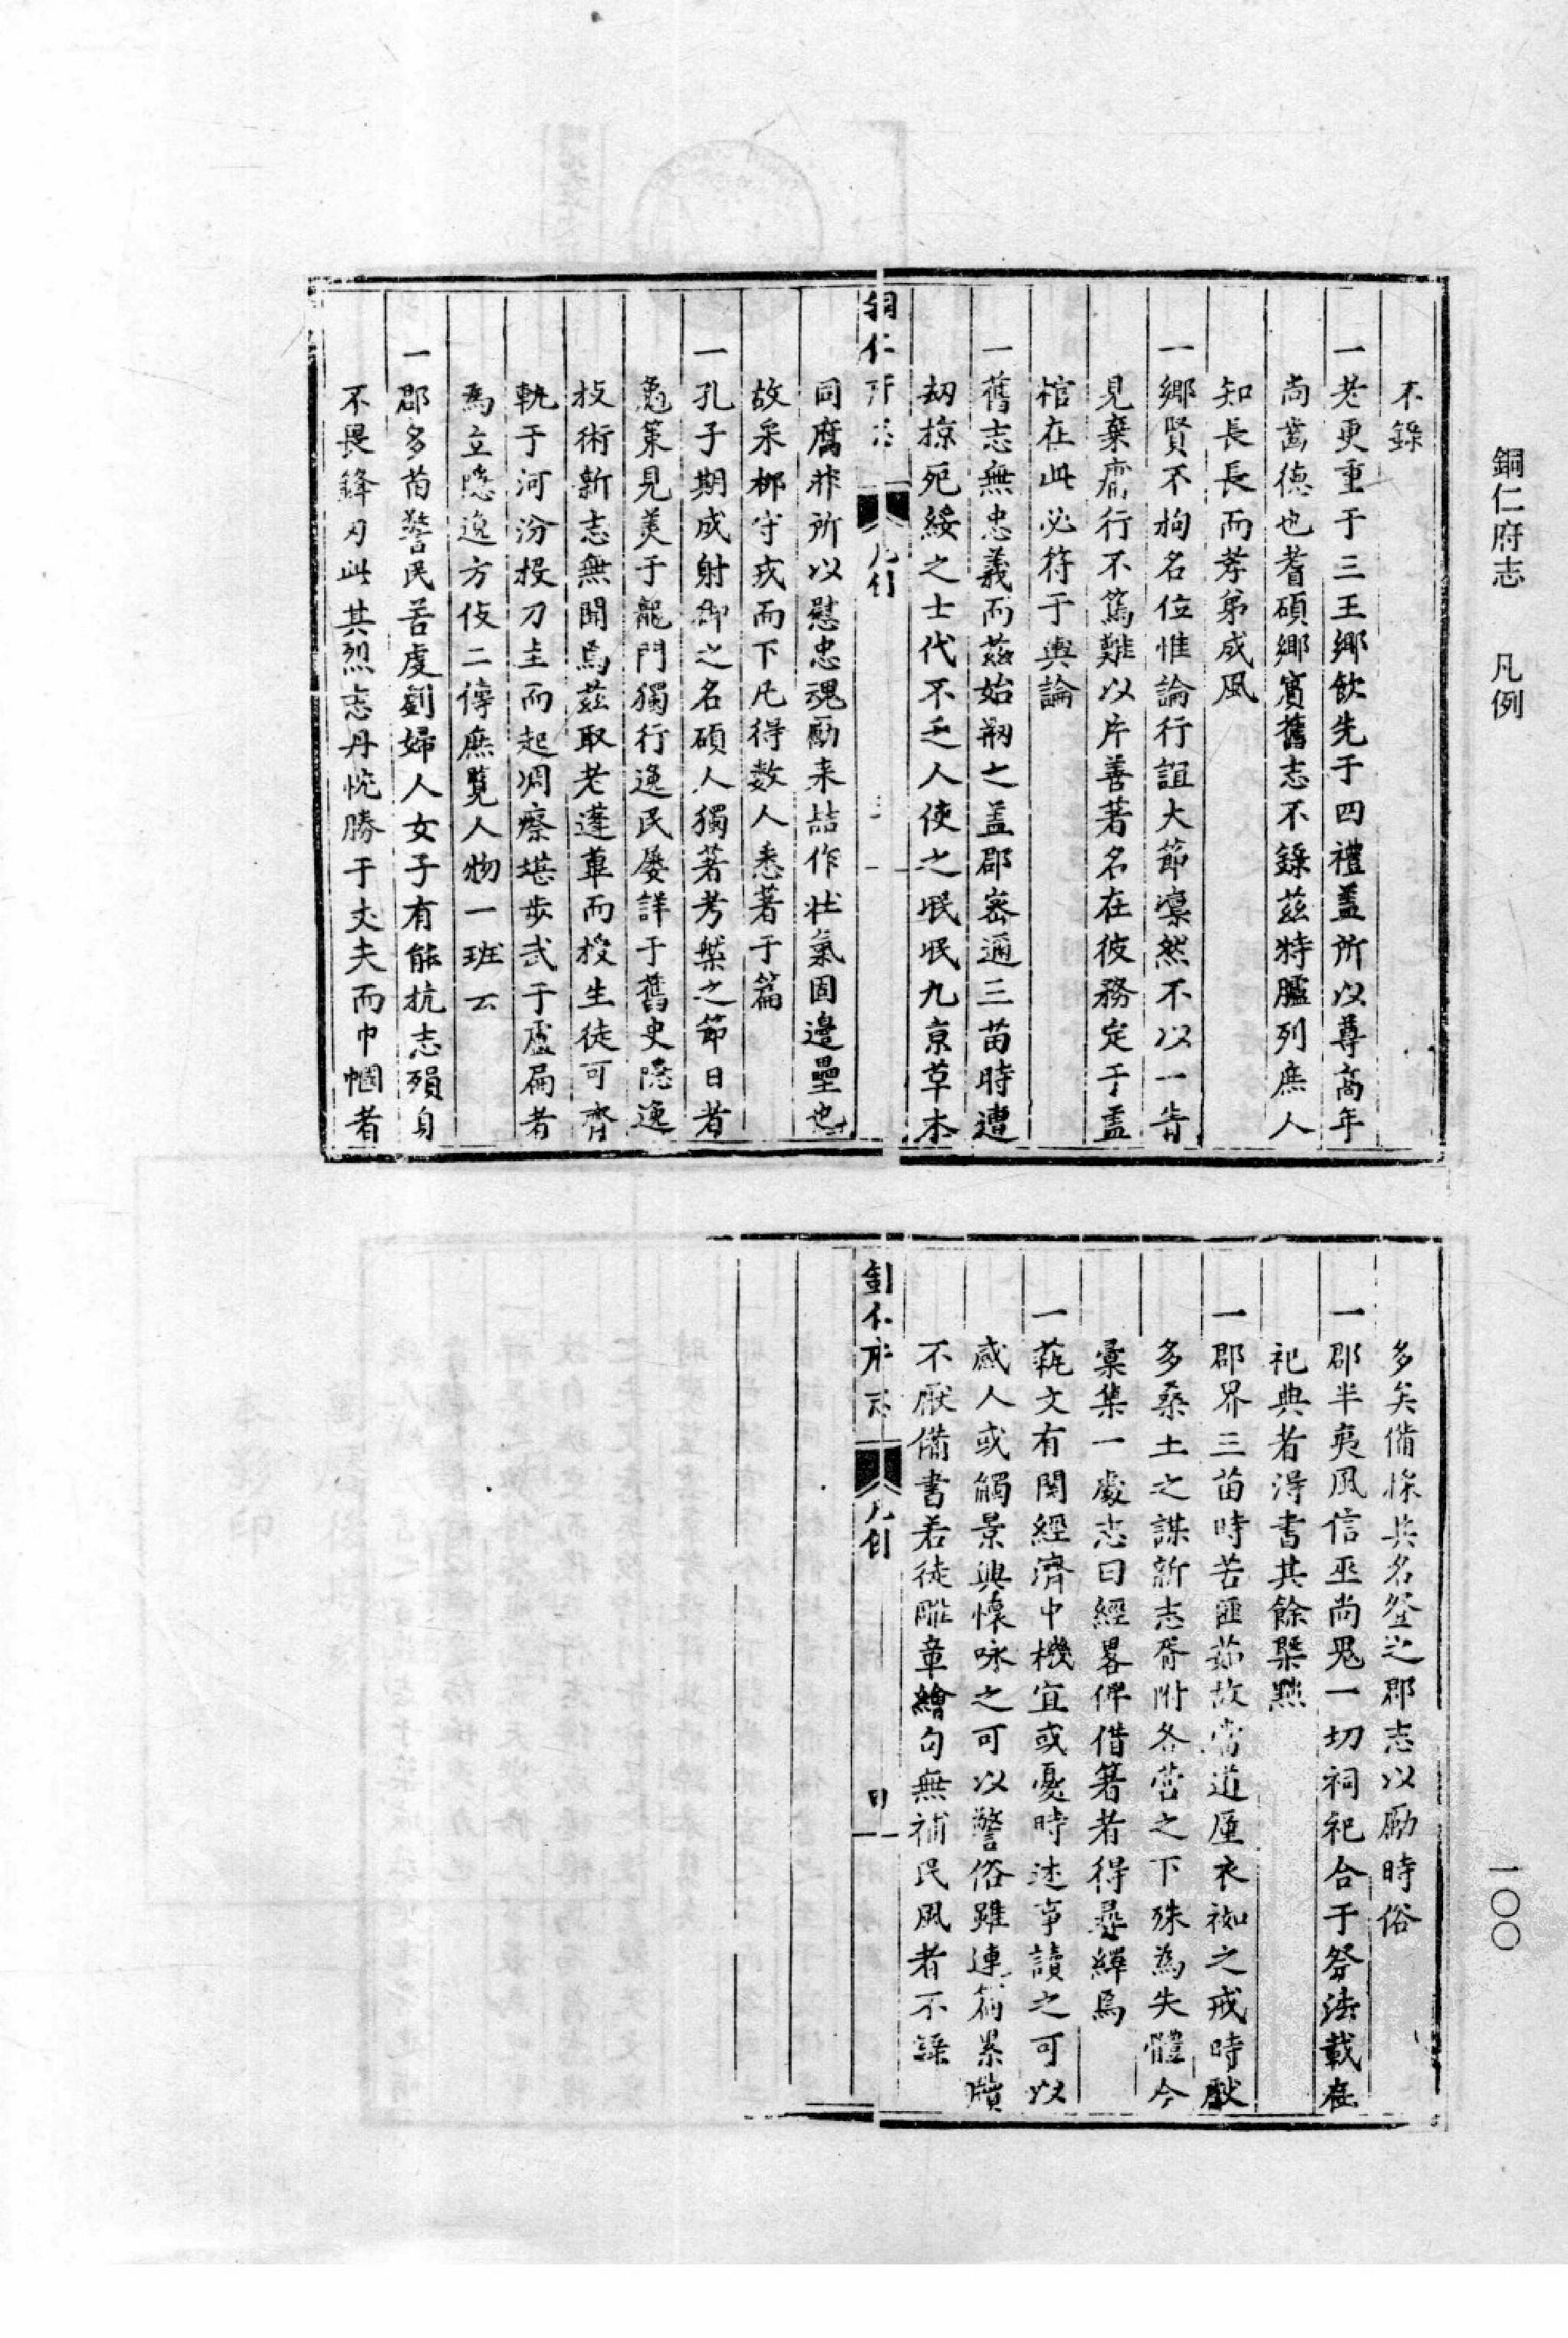 銅仁府志 凡例
一〇〇
不錄
一老更重于三王鄉飲先于四禮蓋所以尊高年
尚齒德也耆碩鄉賓舊志不錄茲特臚列庶人
知長長而孝弟成風
一鄉賢不拘名位惟論行誼大節凛然不以一眚
見棄庸行不篤難以片善著名在彼務定于蓋
棺在此必符于輿論
一舊志無忠義而茲始剏之盖郡密邇三苗時遭
刼掠死綏之士代不乏人使之泯泯九京草木
同腐非所以慰忠魂勵来喆作壯氣固邊壘也
故采郷守戎而下凡得数人悉著于篇
一孔子期成射御之名碩人獨著考槃之節日者
龜策見美于龍門獨行逸民屡詳于舊史隐逸
技術新志無聞焉茲取老蓬蓽而授生徒可齊
軌于河汾投刀圭而起凋瘵堪步武于盧扁者
為立隐逸方伎二傳庶覽人物一班云
一郡多苗警民苦虔劉婦人女子有能抗志殞身
不畏鋒刃此其烈志丹忱勝于丈夫而巾幗者
多矣備採其名登之郡志以勵時俗
一郡半夷風信巫尚鬼一切祠祀合于祭法載在
祀典者得書其餘槩黜
一郡界三苗時苦匪茹故當道厪衣袽之戒時猷
多桑土之謀新志胥附各營之下殊為失體今
彙集一處志曰經畧俾借箸者得尋繹焉
一蓺文有関經濟中機宜或憂時述事讀之可以
感人或觸景興懷咏之可以警俗雖連篇累牘
不厭備書若徒雕章繪句無補民風者不録
銅仁府志 凡例
銅仁府志 凡例 四